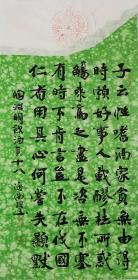 子云性嗜酒家貧無由得
時賴好事人載醪祛所惑
觴來為之盡是諮無不塞
有時不肯言豈不在伐國
仁者用其心何嘗失顯默
陶淵明飲酒之十八